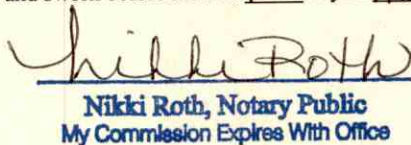 and sworn before
Nikki Roth
Nikki Roth, Notary Public
My Commission Expires With Office